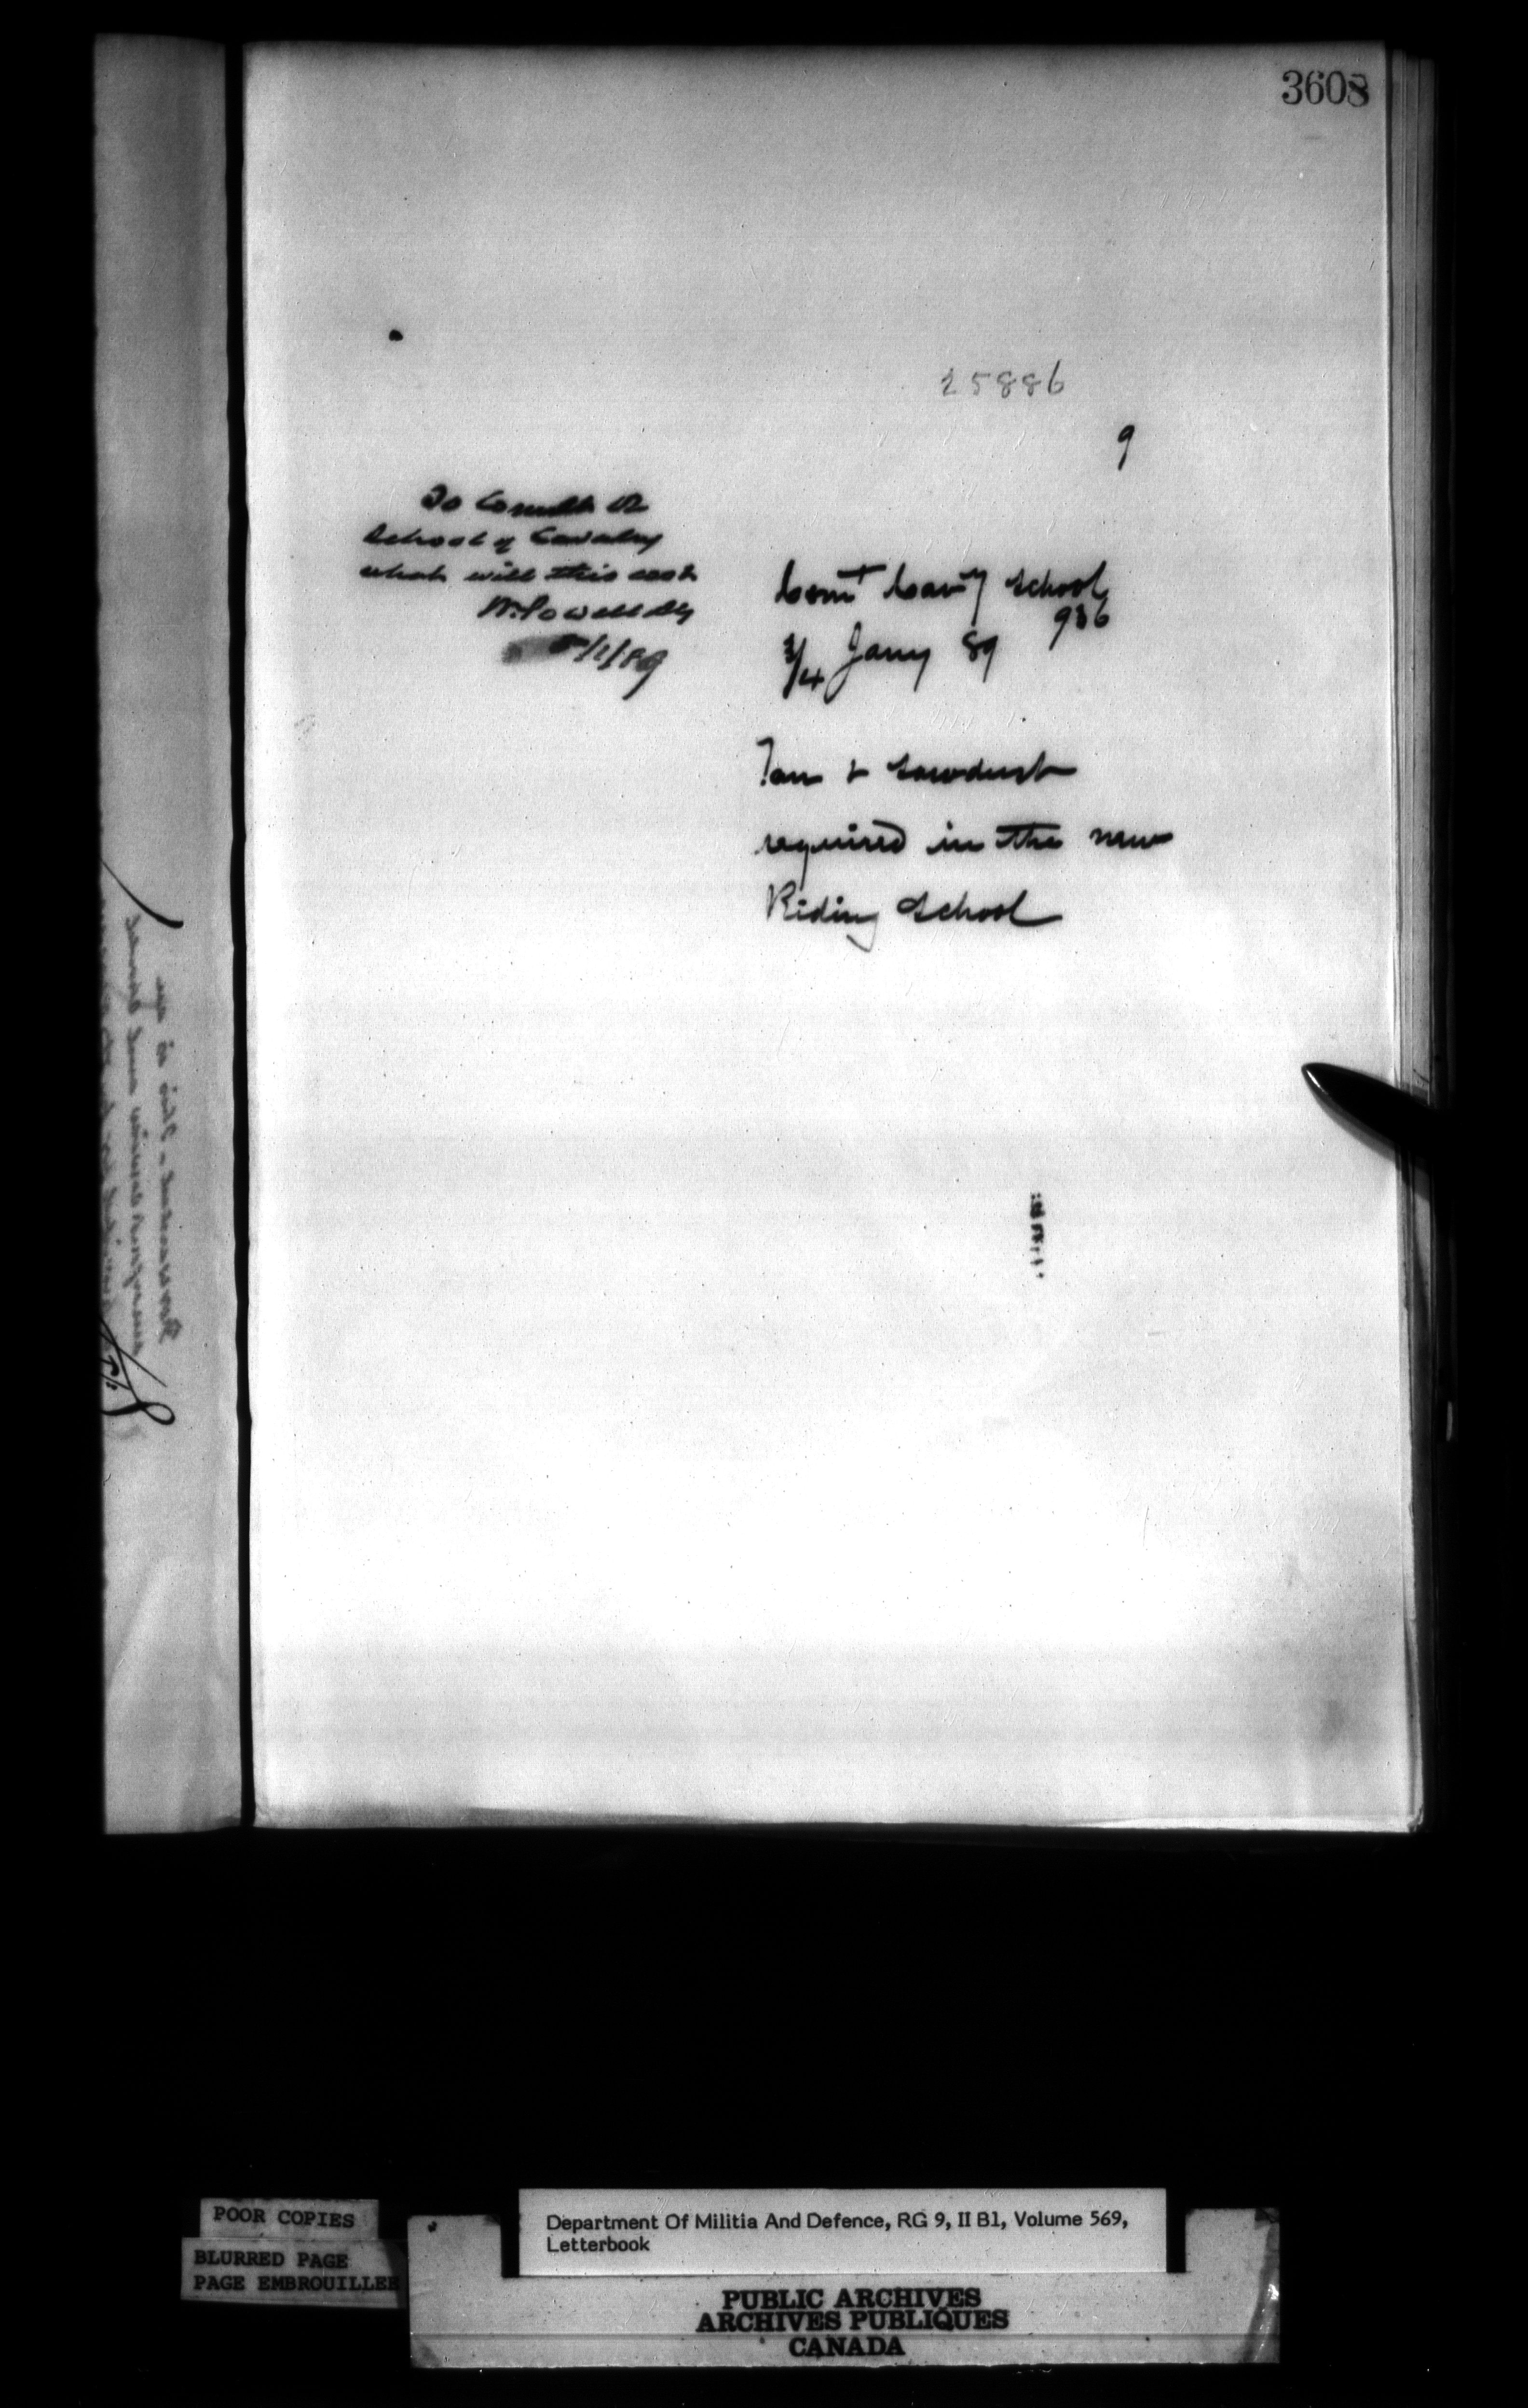 3608
25886
9
To Comdt
School of Cavalry
what will this cost
W. Powell AG
/1/89
Comt Cavy School
936
3/4 Jany 89
Tan & Sawdust
required in the new
Riding School
POOR COPIES
BLURRED PAGE
PAGE EMBROUILLEE
Department Of Militia And Defence, RG 9, II B1, Volume 569,
Letterbook
PUBLIC ARCHIVES
ARCHIVES PUBLIQUES
CANADA